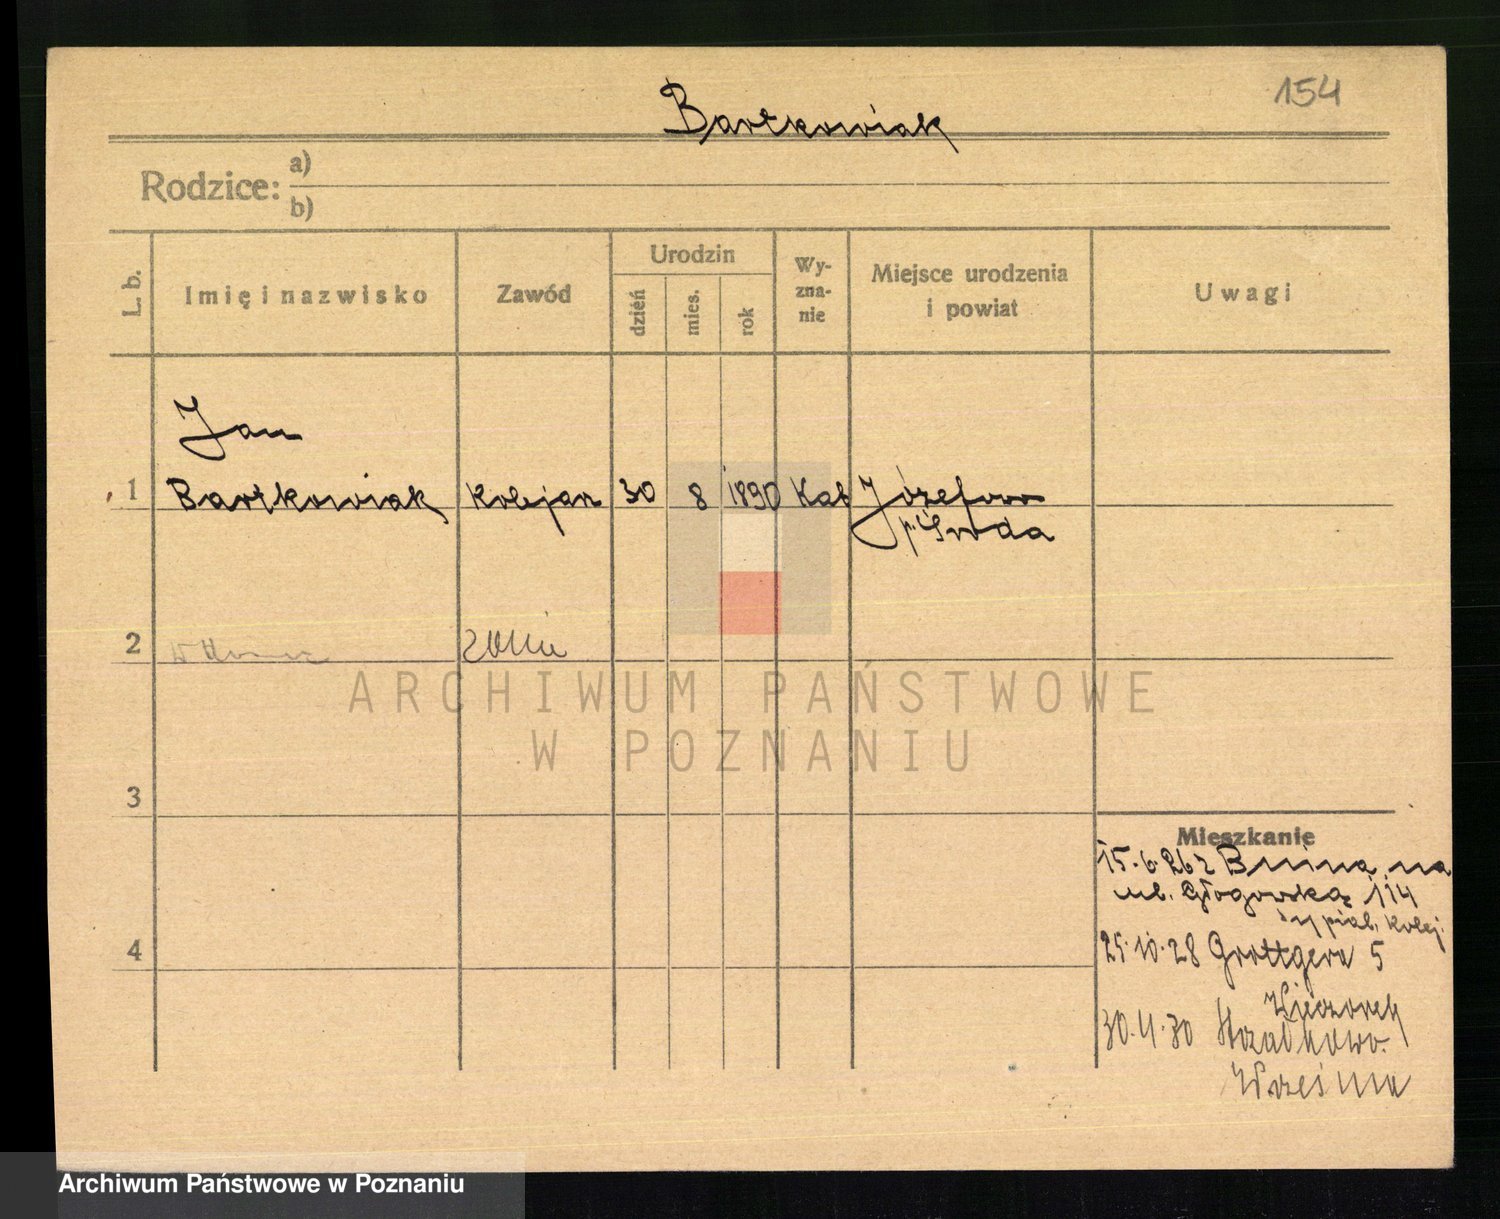 154
Bartkowiak
Rodzice: a)
b)
L. b.
Imię i nazwisko
Zawód
Urodzin
dzień
mies.
rok
Wy-
zna-
nie
Miejsce urodzenia
i powiat
Uwagi
Jan
1 Bartkowiak kolejarz 30 8 1890 Kat Józefowo
p. Środa
2
ARCHIWUM PAŃSTWOWE
W POZNANIU
3
Mieszkanie
15.6.26 z Bnina na
ul. Głogowską 114
kolej.
4
25.10.28 Grottgera 5
Wieczorek
30.4.30 Strzałkowo
Września
Archiwum Państwowe w Poznaniu